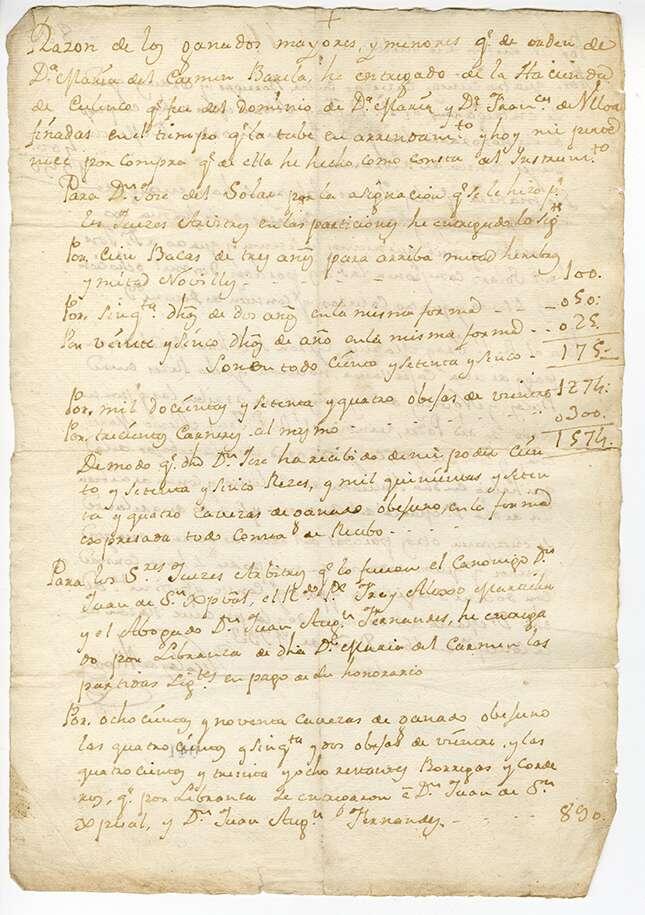 +
Razon de los ganados mayores, y menores q.e de orden de
D.a Maria del Carmen Barela, he entregado de la Hacienda
de Cuenco q.e fue del Dominio de D.a Maria y D.a Fran.ca de
finadas en el tiempo q.e la tube en arrendam.to y hoy me perte
nece por compra q.e de ella he hecho, como consta del Instrum.to
Para D.n Jose del Solar por la asignacion q.e se le hizo p.r
los Jueces Arbitros en las particiones he entregado lo sig.te
Por. Cien Bacas de tres años para arriba mitad hembras
y mitad Novillos - 100.
Por. Sinq.ta dhos de dos años en la misma forma - - 050.
Por veinte y sinco dhos de año en la misma forma - - 025.
Son en todo ciento y setenta y sinco - 175.
Por. mil docientos y setenta y quatro obejas de vientre 1274.
Por. trecientos Carneros al mismo - - - 0300.
1574.
De modo q.e dho D.n Jose ha recibido de mi poder cien
to y setenta y sinco Rezes, y mil quinientas y seten
ta y quatro caveras de ganado obejuno, en la forma
expresada todo consta de Recibo. - - - -
Para los S.res Jueces Arbitros q.e lo fueron el Canonigo D.n
Juan de S.n Xptobal, el R.do P.e Fray Alexo
y el Abogado D.n Juan Aug.n Fernandes, he entrega
do por Libranza de dha D.a Maria del Carmen las
partidas sig.tes en pago de su honorario
Por. ocho cientas y noventa caveras de ganado obejuno
las quatro cientas y sinq.ta y dos obejas de vientre, y las
quatro cientas y treinta y ocho restantes Borregas y Corde
ros, q.e por Libranza se entregaron á D.n Juan de S.n
Xptobal, y D.n Juan Aug.n Fernandes. - - - - 890.